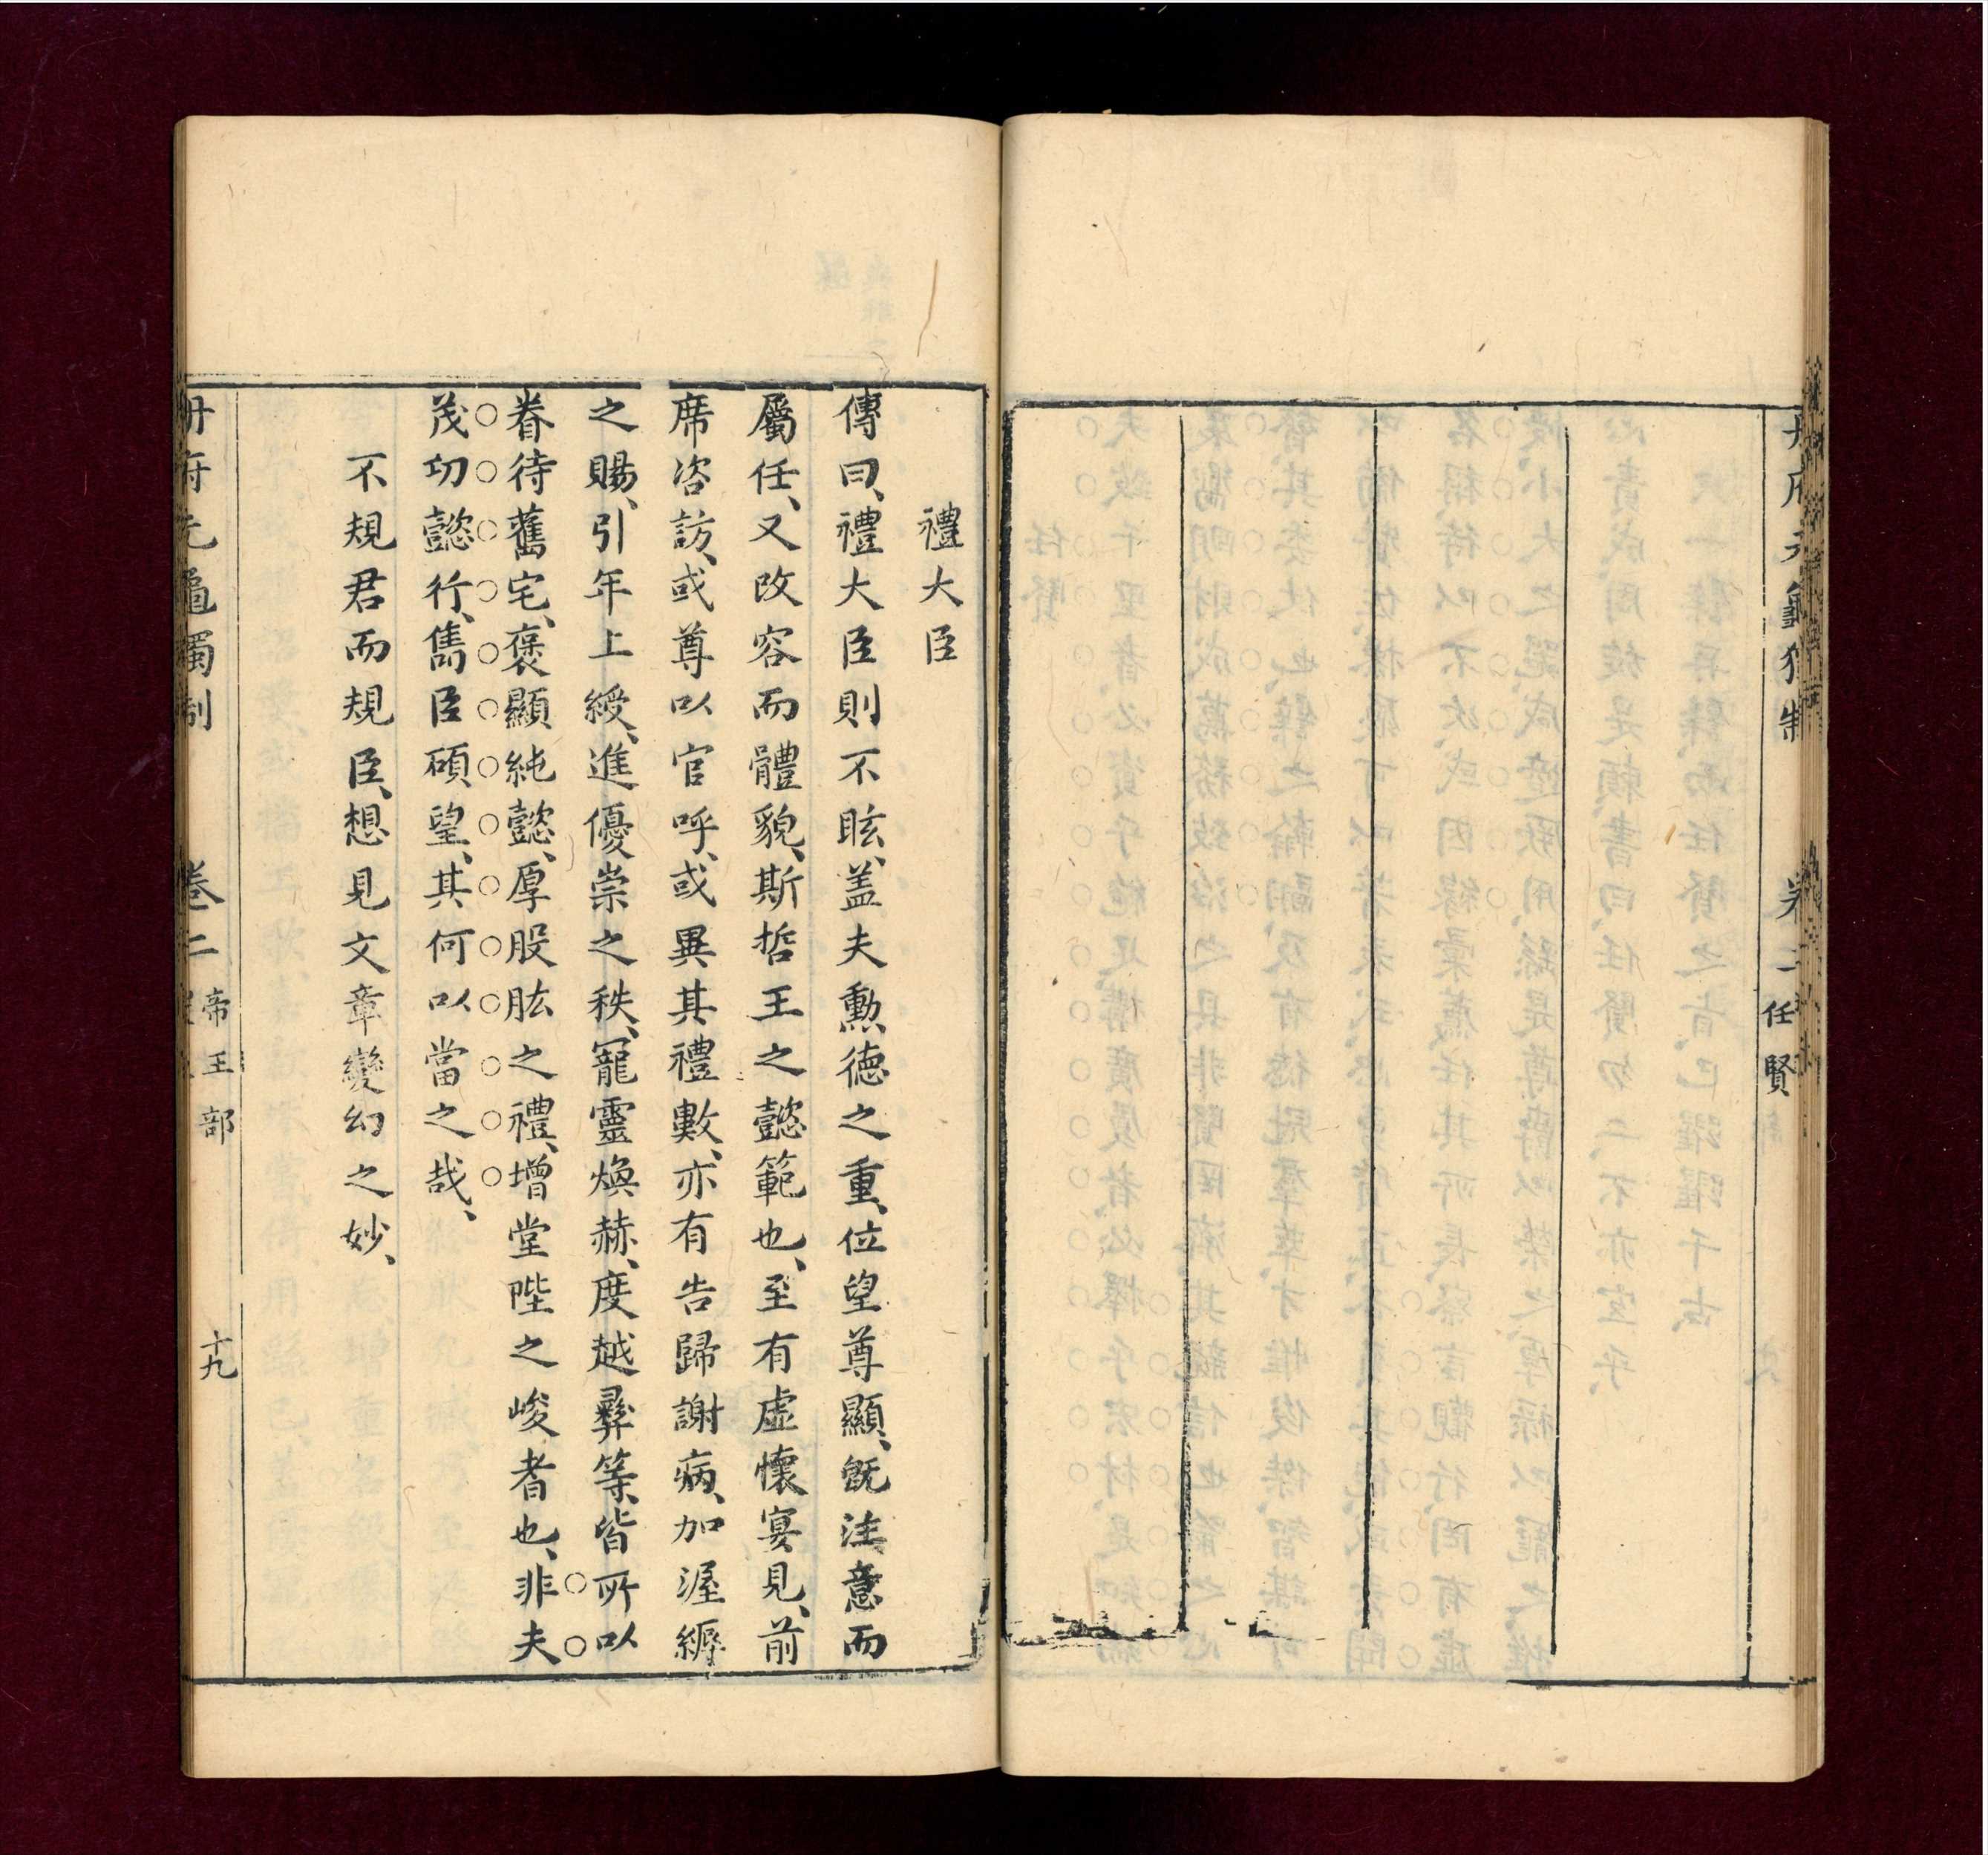 冊府元龜獨制 卷二 任賢
禮大臣
傳曰、禮大臣則不眩、蓋夫勳德之重、位望尊顯、旣注意而
屬任、又改容而體貌、斯哲王之懿範也、至有虛懷宴見、前
席咨訪、或尊以官呼、或異其禮數、亦有告歸謝病、加渥縟
之賜、引年上綬、進優崇之秩、寵靈煥赫、度越彝等、皆所以
眷待舊宅、褒顯純懿、厚股肱之禮、增堂陛之峻者也、非夫
茂功懿行、雋臣碩望、其何以當之哉、
不規君而規臣、想見文章變幻之妙、
冊府元龜獨制 卷二 帝王部 十九